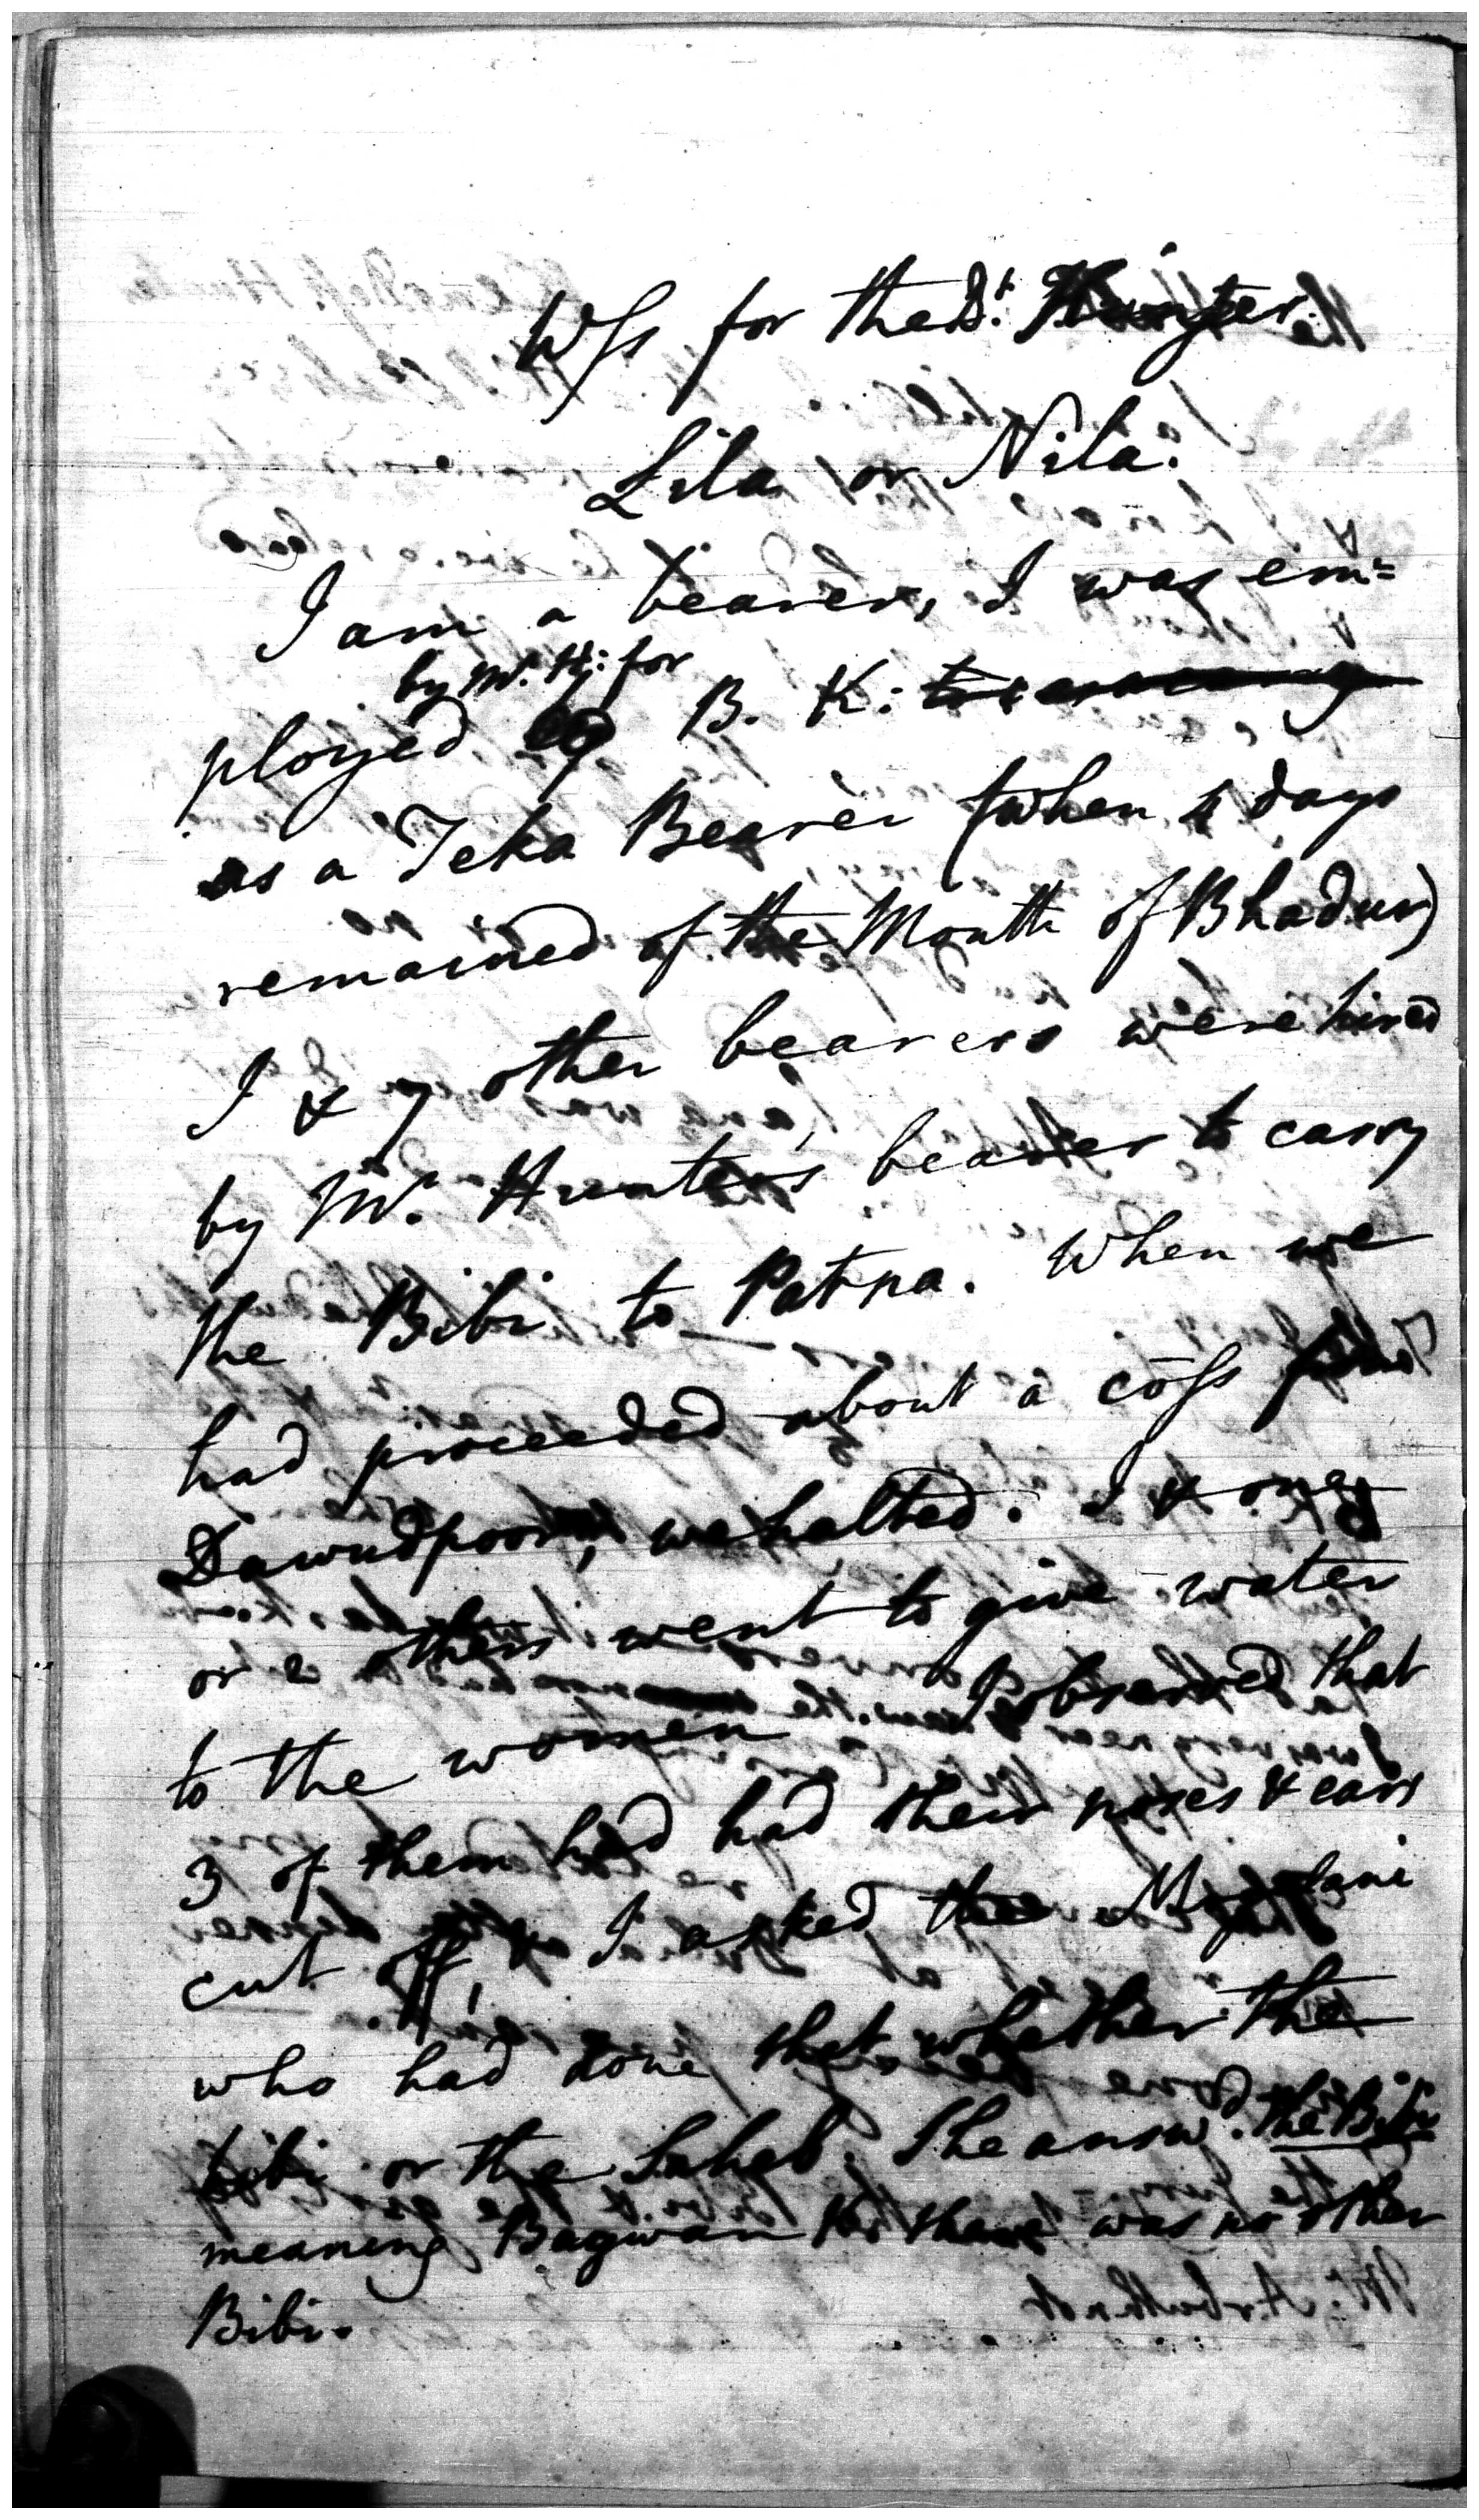 Wss for the Dt. Hunter.
Lila or Nila.
I am a bearer, I was em=
by Mr. H: for
ployed B. K:
as a Teka Bearer (when 4 days
remained of the Month of Bhadur)
I & 7 other bearers were hired
by Mr. Hunter's bearer to carry
the Bibi to Patna. When we
had proceeded about a coss
Dawudpoor, we halted. I & one
or 2 others went to give water
to the women I observed that
3 of them had had their noses & ears
cut off, I asked the
who had done that whether the
bibi or the Saheb. She answd. the Bibi
meaning Bagwan for there was no other
Bibi.